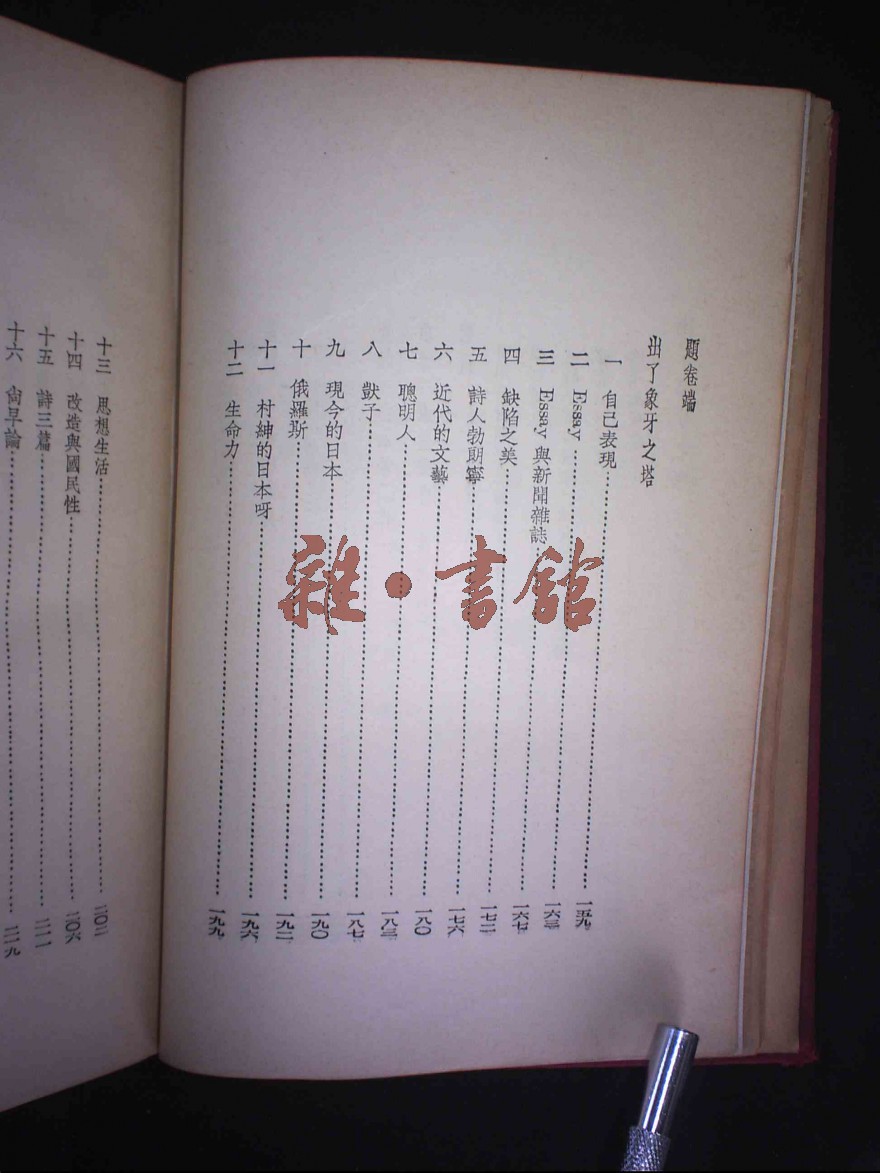 題卷端
出了象牙之塔
一 自己表現……一五九
二 Essay……一六三
三 Essay與新聞雜誌……一六七
四 缺陷之美……一七二
五 詩人勃朗寧……一七六
六 近代的文藝……一八〇
七 聰明人……一八三
八 獃子……一八七
九 現今的日本……一九〇
十 俄羅斯……一九二
十一 村紳的日本呀……一九六
十二 生命力……一九九
十三 思想生活……二〇二
十四 改造與國民性……二〇六
十五 詩三篇……二一一
十六 尙早論……二一九
雜·書館